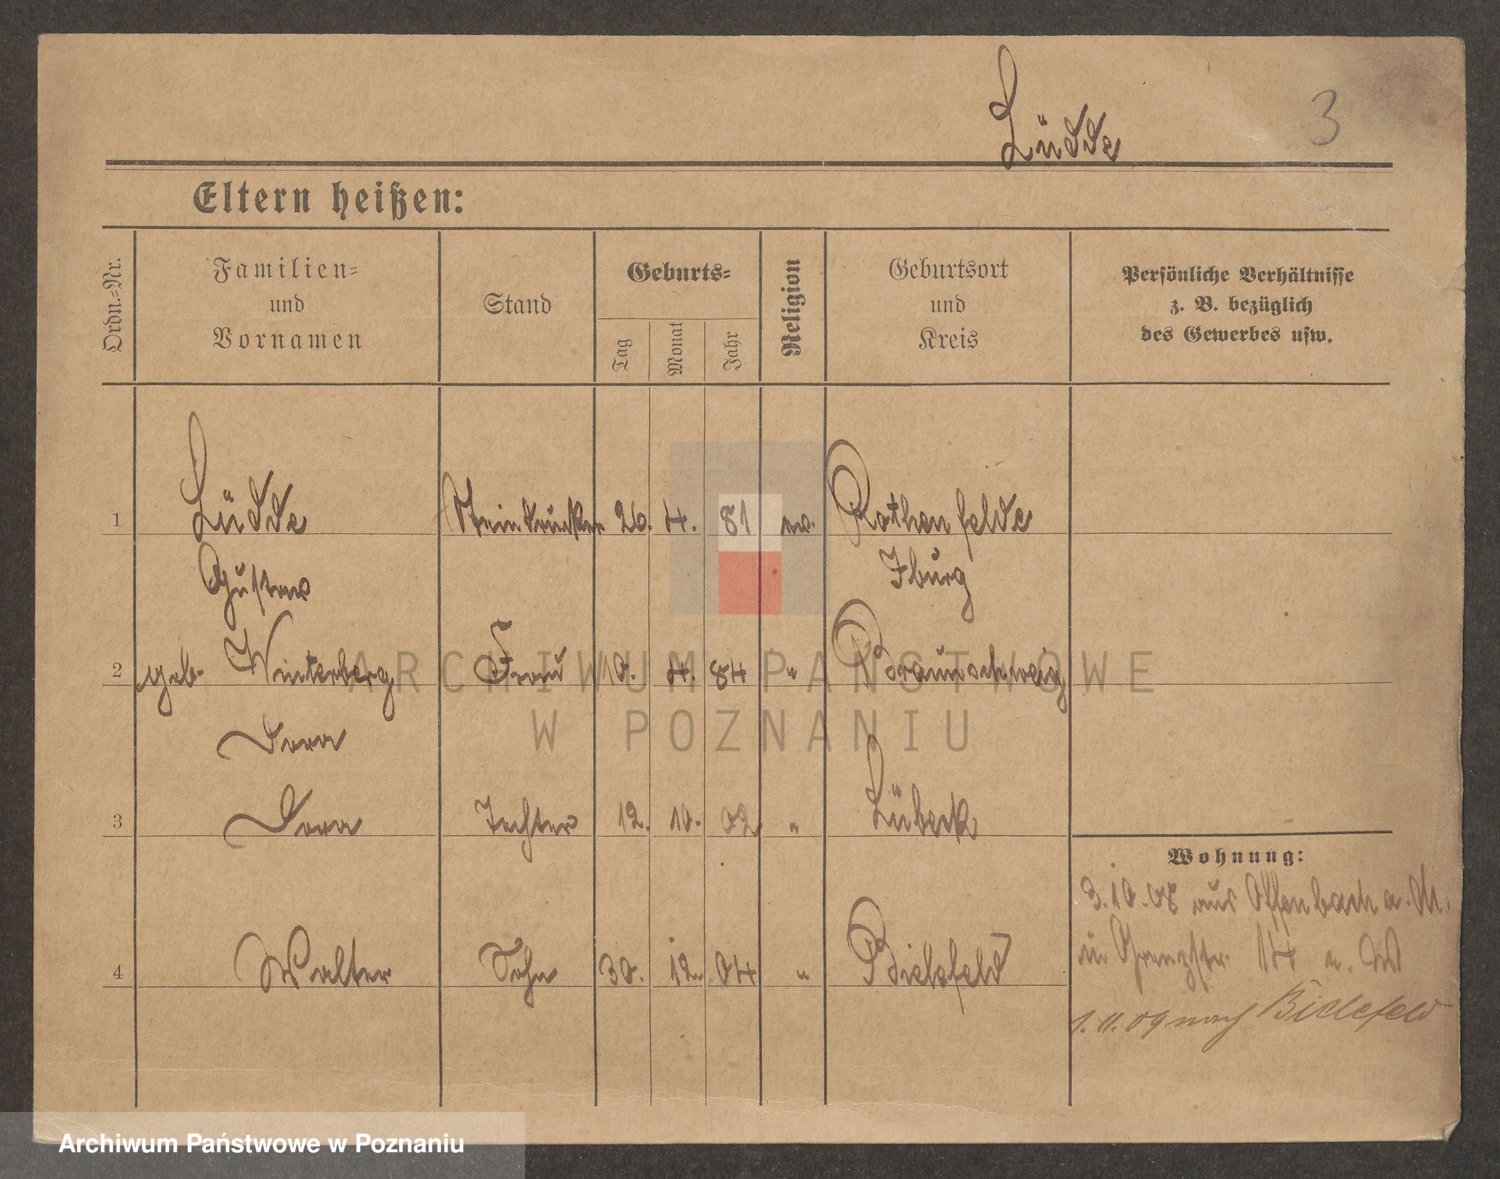 Lüdde
3
Eltern heißen:
Ordn.-Nr.
Familien-
und
Vornamen
Stand
Geburts-
Tag
Monat
Jahr
Religion
Geburtsort
und
Kreis
Persönliche Verhältnisse
z. B. bezüglich
des Gewerbes usw.
1 Lüdde Steindrucker 26. 4. 81 ev. Rothenfelde
Gustav Iburg
2 geb. Winterberg Frau 10. 4. 84 " Braunschweig
Dora
3 Dora Tochter 12. 10. 02 " Lübeck
Wohnung:
3.10.08 aus Offenbach a. M.
4 Walter Sohn 30. 12. 04 " Bielefeld
in Grenzstr. 14
1.11.09 nach Bielefeld
ARCHIWUM PAŃSTWOWE
W POZNANIU
Archiwum Państwowe w Poznaniu